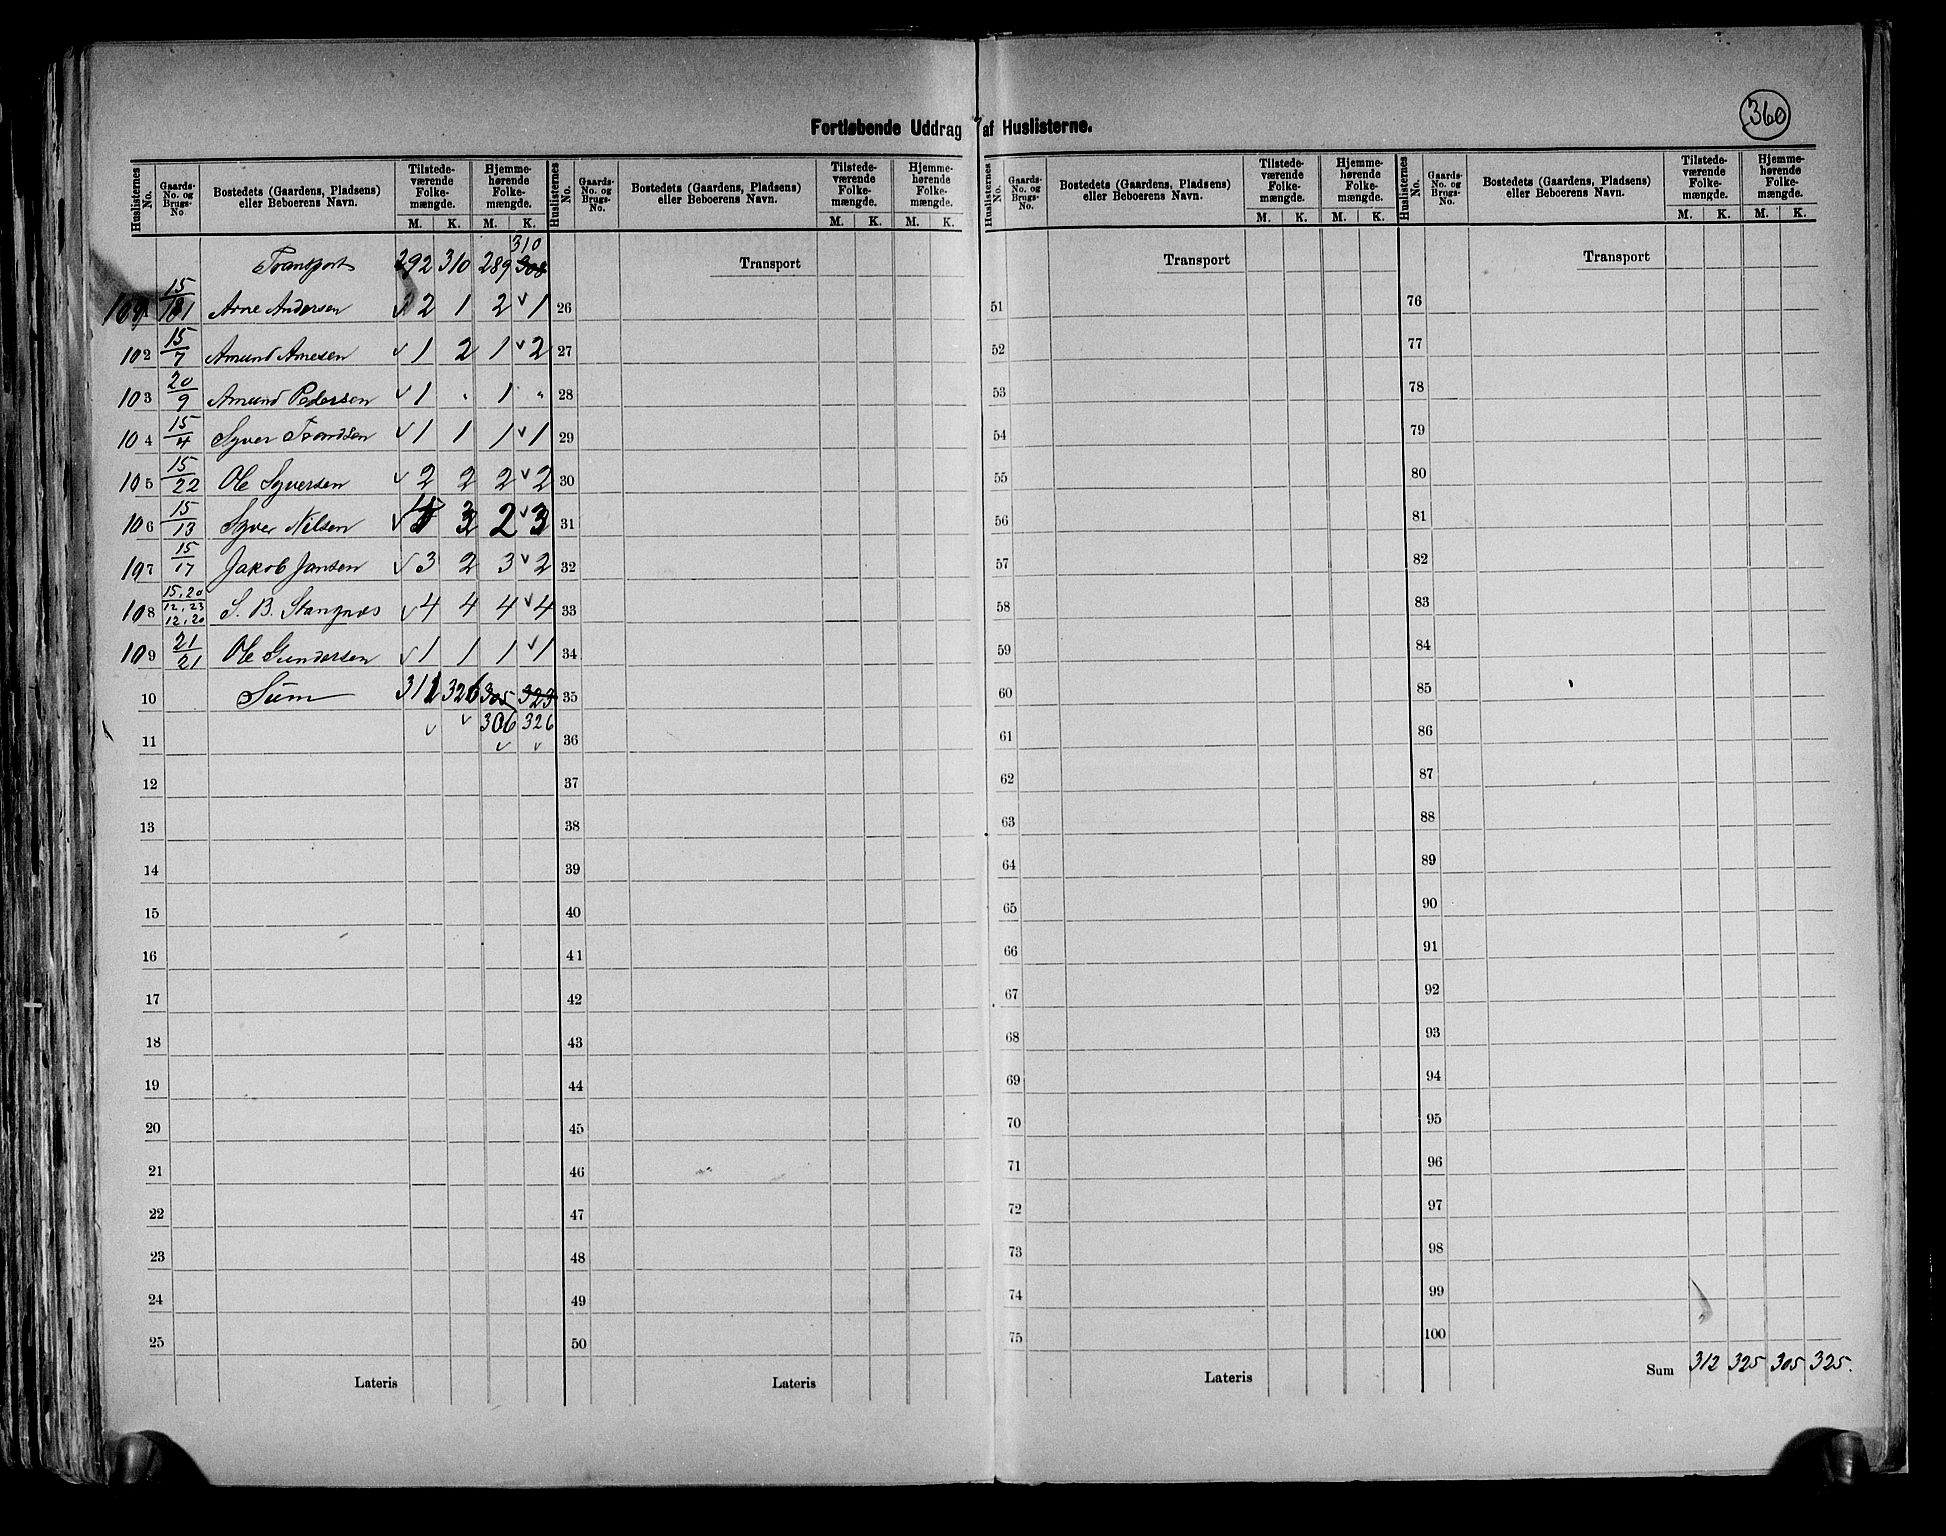 360
Fortløbende Uddrag af Huslisterne.
Huslisternes No. Gaards-No. og Brugs-No Bostedets (Gaardens, Pladsens) eller Beboerens Navn. Tilstedeværende Folkemængde. M. K. Hjemmehørende Folkemængde. M. K.
Transport 292 310 289 308 310
101 15/181 Arne Andersen 2 1 2 1
102 15/7 Amund Arnesen 1 2 1 2
103 20/9 Amund Pedersen 1 " 1 "
104 15/4 Syver Trondsen 1 1 1 1
105 15/22 Ole Syversen 2 2 2 2
106 15/13 Syver Nilsen 3 2 3
107 15/17 Jakob Jansen 3 2 3 2
108 15,20 12,23 12,20 S. B. Stangnæs 4 4 4 4
109 21/21 Ole Gundersen 1 1 1 1
10 Sum 312 326 305 323
306 326
11
12
13
14
15
16
17
18
19
20
21
22
23
24
25
Lateris
Huslisternes No. Gaards-No. og Brugs-No. Bostedets (Gaardens, Pladsens) eller Beboerens Navn. Tilstedeværende Folkemængde. M. K. Hjemmehørende Folkemængde. M. K.
Transport
26
27
28
29
30
31
32
33
34
35
36
37
38
39
40
41
42
43
44
45
46
47
48
49
50
Lateris
Huslisternes No. Gaards-No. og Brugs-No. Bostedets (Gaardens, Pladsens) eller Beboerens Navn. Tilstedeværende Folkemængde. M. K. Hjemmehørende Folkemængde. M. K.
Transport
51
52
53
54
55
56
57
58
59
60
61
62
63
64
65
66
67
68
69
70
71
72
73
74
75
Lateris
Huslisternes No. Gaards-No. og Brugs-No. Bostedets (Gaardens, Pladsens) eller Beboerens Navn. Tilstedeværende Folkemængde. M. K. Hjemmehørende Folkemængde. M. K.
Transport
76
77
78
79
80
81
82
83
84
85
86
87
88
89
90
91
92
93
94
95
96
97
98
99
100
Sum 312 325 305 325.